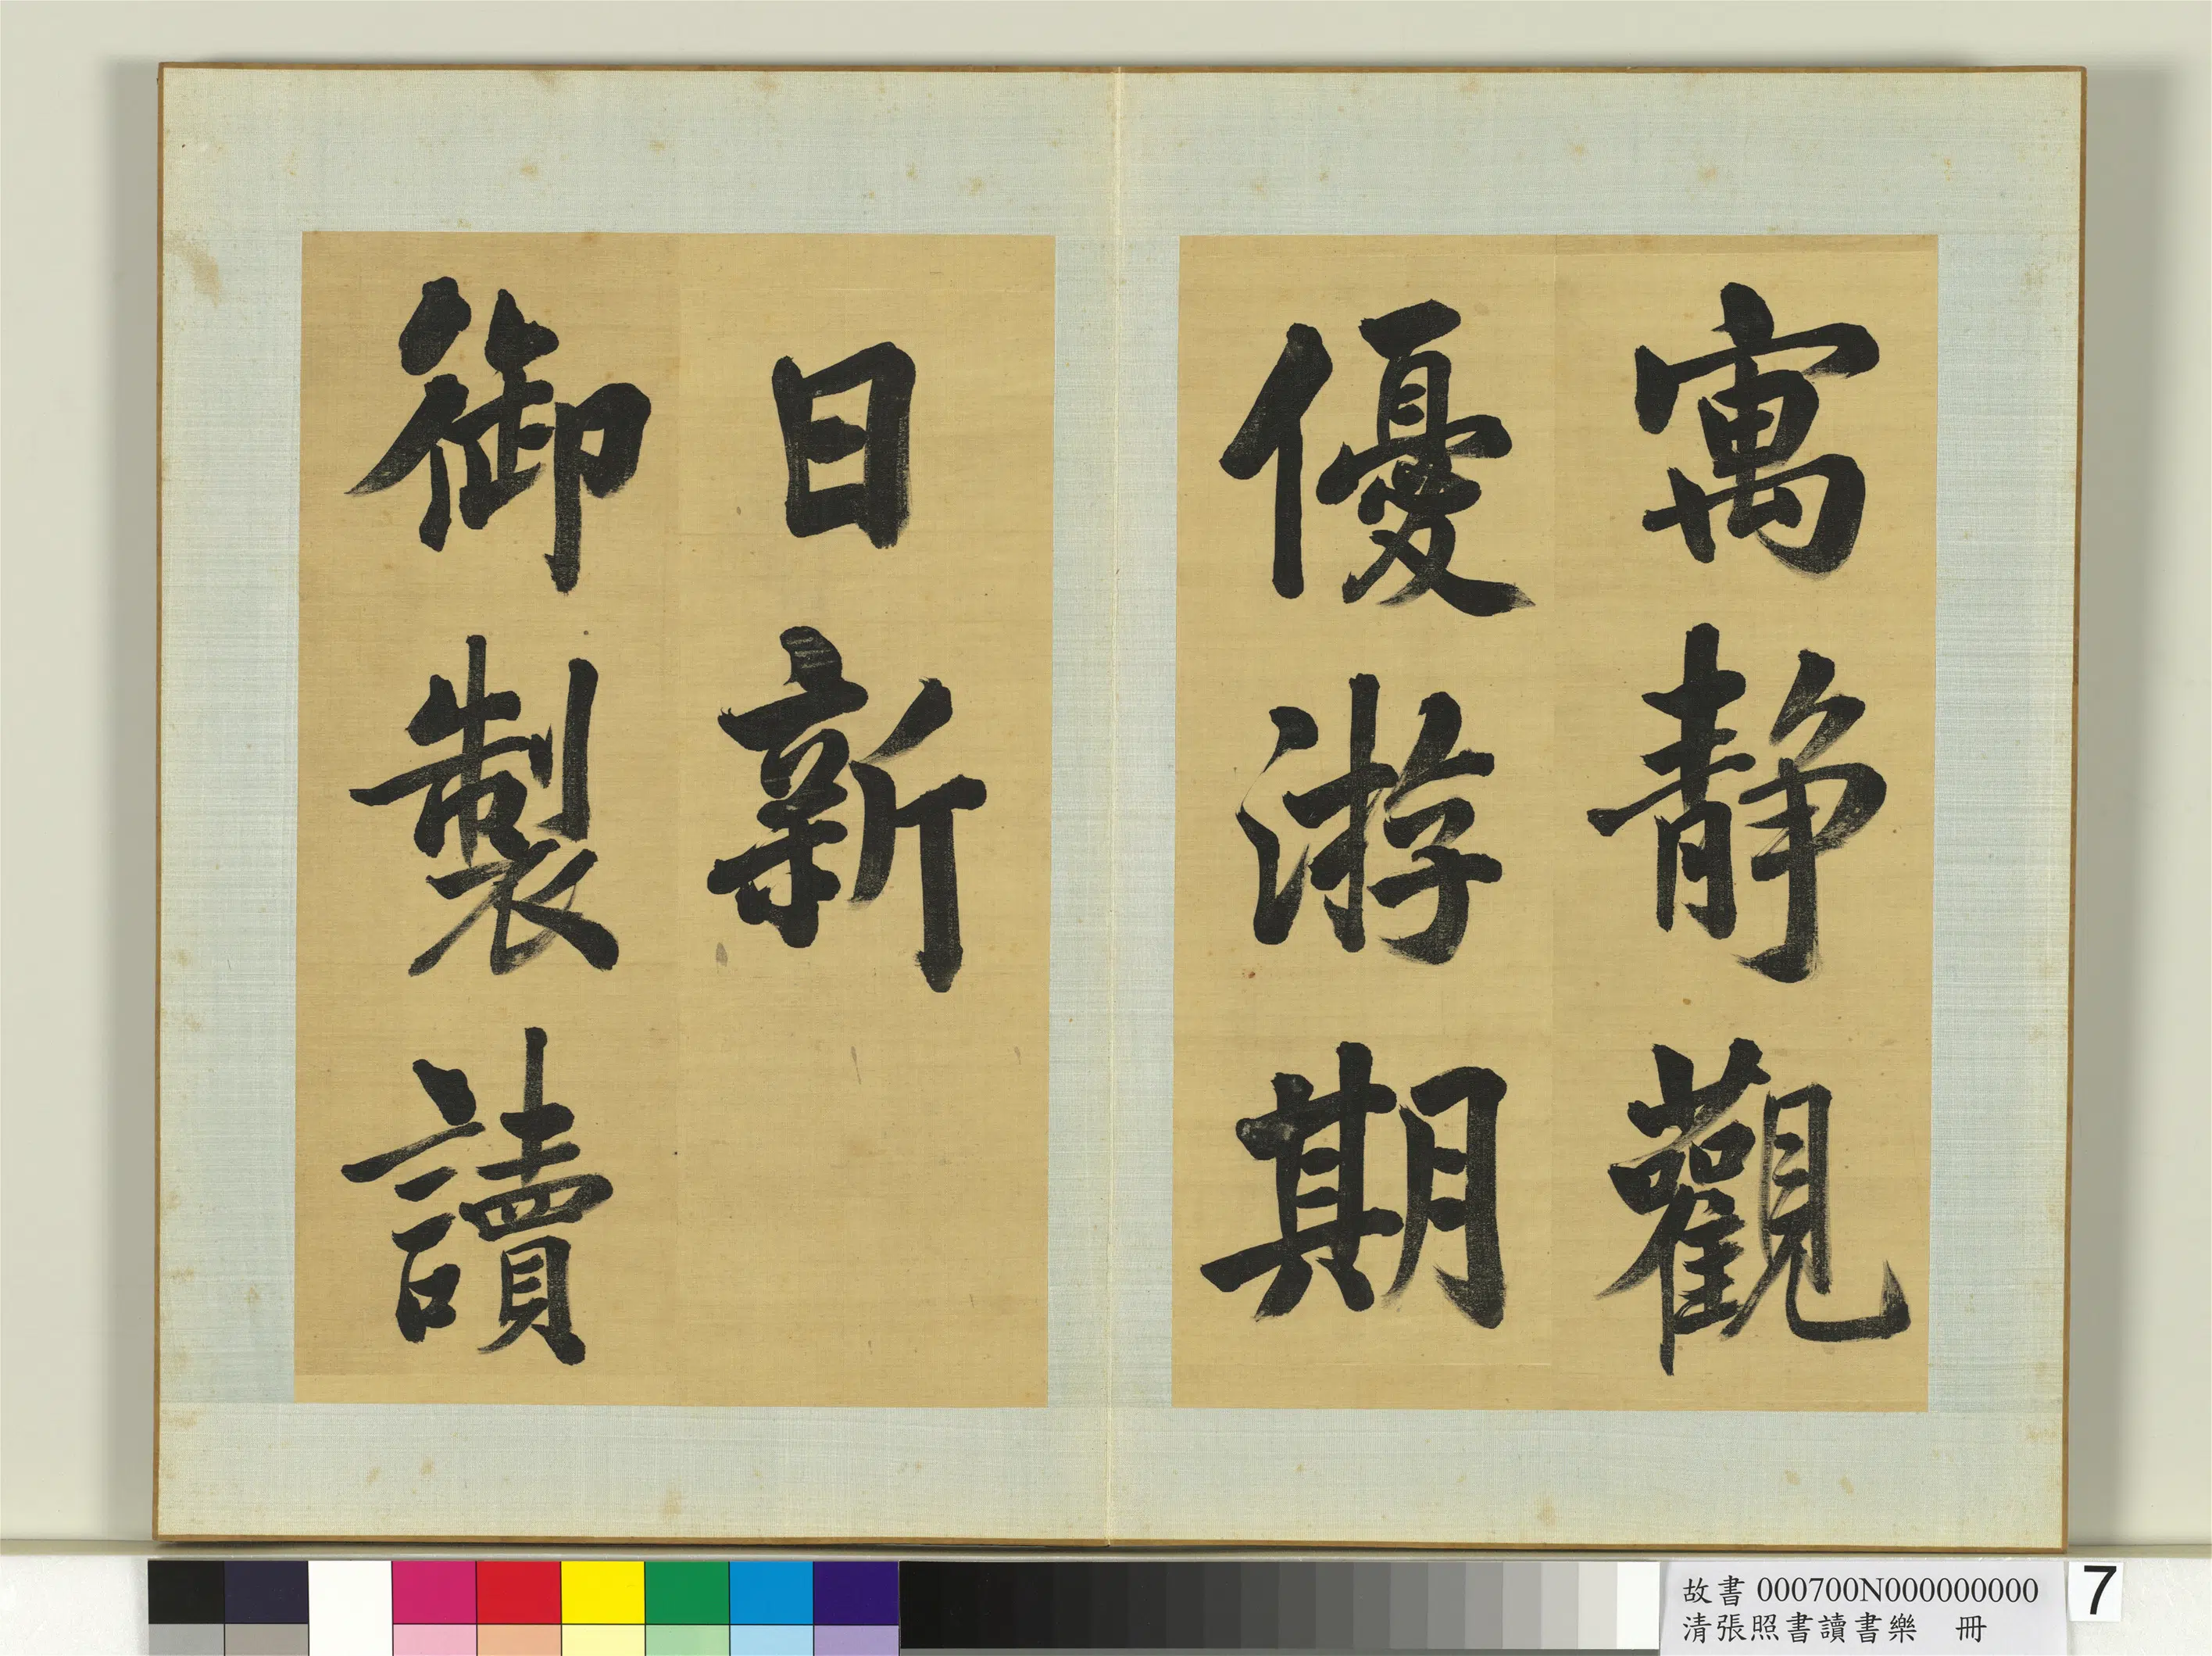 寓靜觀
優游期
日新
御製讀
故書 000700N000000000
清張照書讀書樂 冊
7